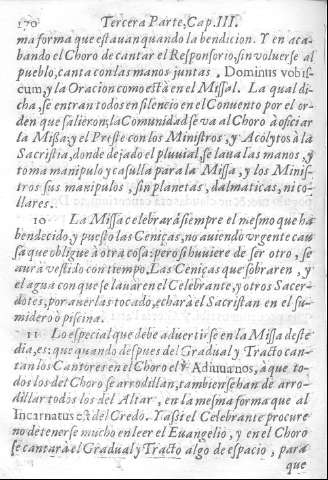 170 Tercera Parte, Cap. III.
ma forma que estauan quando la bendicion. Y en aca-
bando el Choro de cantar el Responsorio, sin voluerse al
pueblo, canta con las manos juntas, Dominus vobis
cum, y la Oracion como està en el Missal. La qual di
cha, se entran todos en silencio en el Conuento por el or-
den que salieron; la Comunidad se va al Choro à oficiar
la Missa: y el Preste con los Ministros, y Acolytos à la
Sacristia, donde dejado el pluuial, se laua las manos, y
toma manipulo y casulla para la Missa, y los Minis-
tros sus manipulos, sin planetas, dalmaticas, ni co-
llares.
10 La Missa celebrarà siempre el mesmo que ha
bendecido, y puesto las Ceniças, no auiendo vrgente cau
sa que obligue à otra cosa: pero si huuiere de ser otro, se
aurà vestido con tiempo. Las Ceniças que sobraren, y
el agua con que se lauaren el Celebrante, y otros Sacer-
dotes, por auerlas tocado, echarà el Sacristan en el su-
midero ò piscina.
11 Lo especial que debe aduertirse en la Missa deste
dia, es: que quando despues del Gradual y Tracto can-
tan los Cantores en el Choro el ℣. Adiuua nos, à que to-
dos los del Choro se arrodillan, tambien se han de arro-
dillar todos los del Altar, en la mesma forma que al
Incarnatus est del Credo. Y assi el Celebrante procure
no detenerse mucho en leer el Euangelio, y en el Choro
se cantarà el Gradual y Tracto algo de espacio, para
que